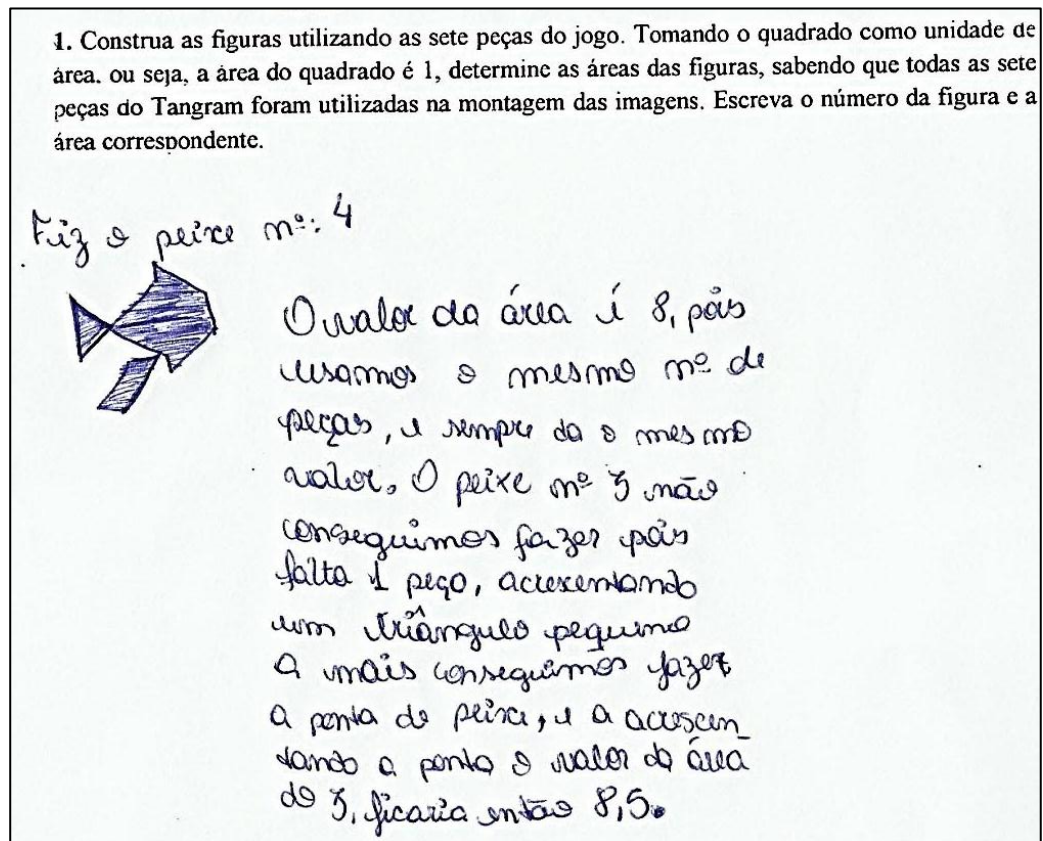 1. Construa as figuras utilizando as sete peças do jogo. Tomando o quadrado como unidade de
área. ou seja, a área do quadrado é 1, determine as áreas das figuras, sabendo que todas as sete
peças do Tangram foram utilizadas na montagem das imagens. Escreva o número da figura e a
área correspondente.
Fiz o peixe nº: 4
O valor da área é 8, pois
usamos o mesmo nº de
peças, e sempre da o mesmo
valor. O peixe nº 3 não
conseguimos fazer pois
falta 1 peço, acresentando
um triângulo pequeno
a mais conseguimos fazer
a ponta do peixe, e a acrescen_
tando a ponta o valor da área
do 3, ficaria então 8,5.